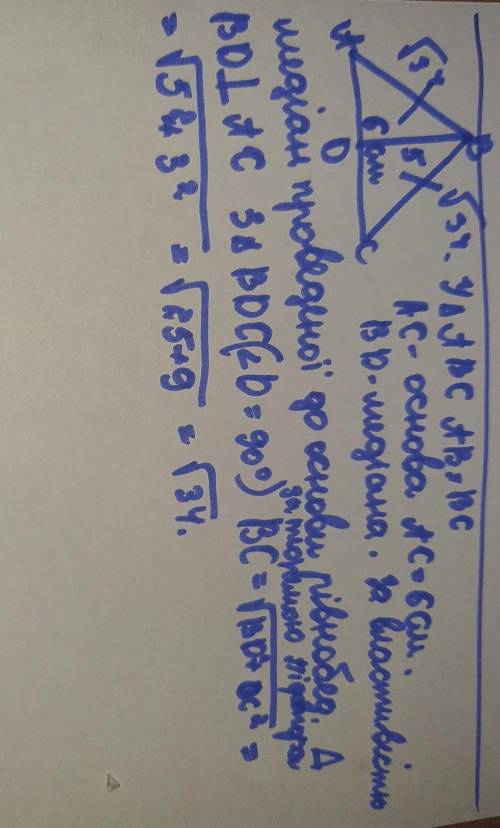 √34. У Δ ABC AB=BC
AC - основа AC=6см.
BD-медіана. За властивістю
медіан проведеної до основи рівнобед. Δ
BD⊥AC З Δ BDC(∠D=90°) за теоремою Піфагора BC=√BD+DC² =
=√5²+3² = √25+9 = √34.
A
B
C
D
√34
5
6 см